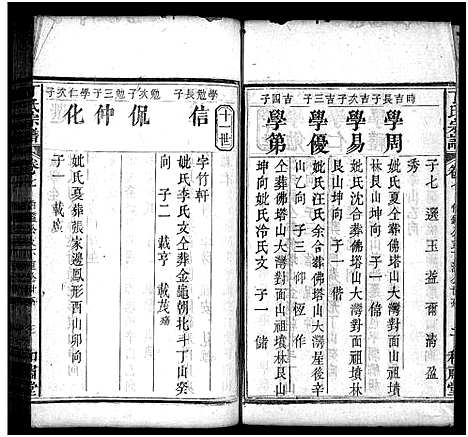 丁氏宗譜
卷七
子七 選 玉 益 爾 清 盈
秀
時吉長子
學周
妣氏 仝葬佛塔山大灣對面山祖墳
林艮山坤向 子一
吉次子
學易
妣氏沈合葬佛塔山大灣對面山祖墳林
艮山坤向 子一 偕
吉三子
學優
妣氏汪余合葬佛塔山大灣屋後辛
山乙向 子三 仰 侄 作
吉四子
學第
仝葬佛塔山大灣對面山祖墳林艮山
坤向妣氏冷氏文 子一 儲
十世
學勉長子
信
字竹軒
妣氏李氏文仝葬金龜朝北斗丁山癸
向 子二 載亨 載茂殤
勉次子
侃
勉三子
仲
學仁次子
化
妣氏夏葬張家邊鳳形酉山卯向
子一 載盛
丁氏宗譜